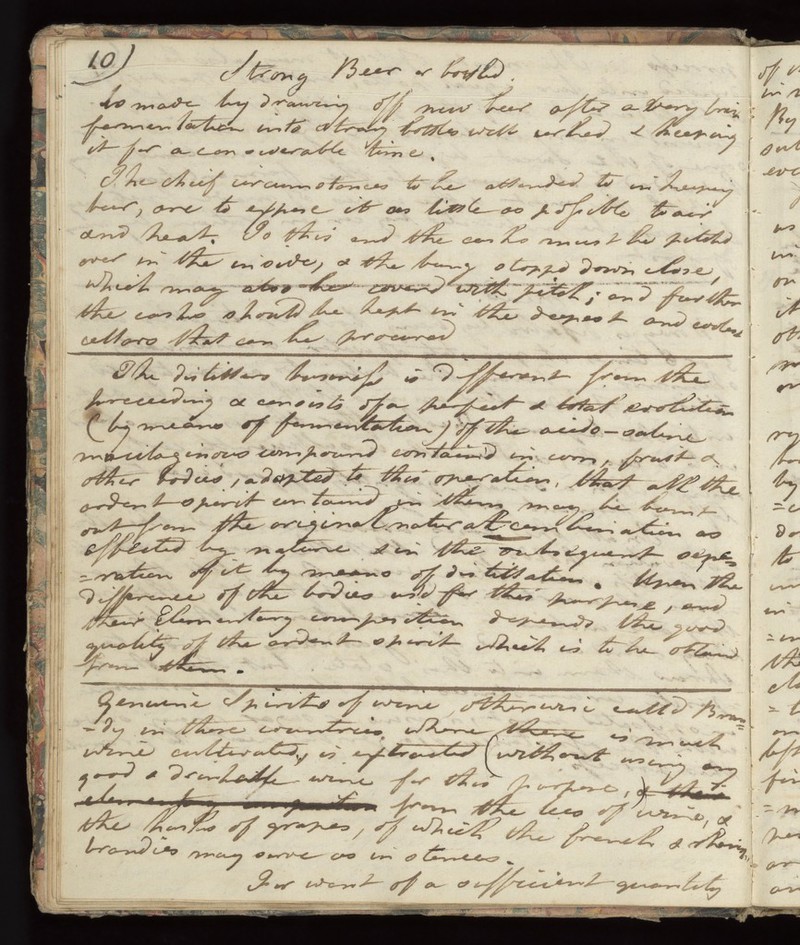 10)
Strong Beer or bottled.
Is made by drawing off new beer after a very
fermentation into strong bottles well corked & keeping
it for a considerable time.
The chief circumstances to be attended to in keeping
beer, are to expose it as little as possible to air
and heat. To this end the casks must be pitched
over in the inside, & the bung stopped down close,
which may also be covered with pitch; and further
the casks should be kept in the deepest and coolest
cellars that can be procured
The distillers business is different from the
preceeding & consists of a perfect & total evolution
(by means of fermentation) of the acido-saline
mucilaginous compound contained in corn, fruit &
other bodies, adapted to this operation, that all the
ardent spirit contained in them may be burnt
out from the original natural combination as
effected by nature & in the subsequent sepe=
=ration of it by means of distillation. Upon the
difference of the bodies used for this purpose, and
their Elementary composition depends the good
quality of the ardent spirit which is to be obtained
from them.
Genuine Spirits of wine, otherwise called Bran=
=dy in those countries where there is much
wine cultivated, is extracted (without using any
good & drinkable wine for this purpose, & their
elementary composition from the lees of wine, &
the husks of grapes, of which the french & rhenish
brandies may serve as instences.
For want of a sufficient quantity